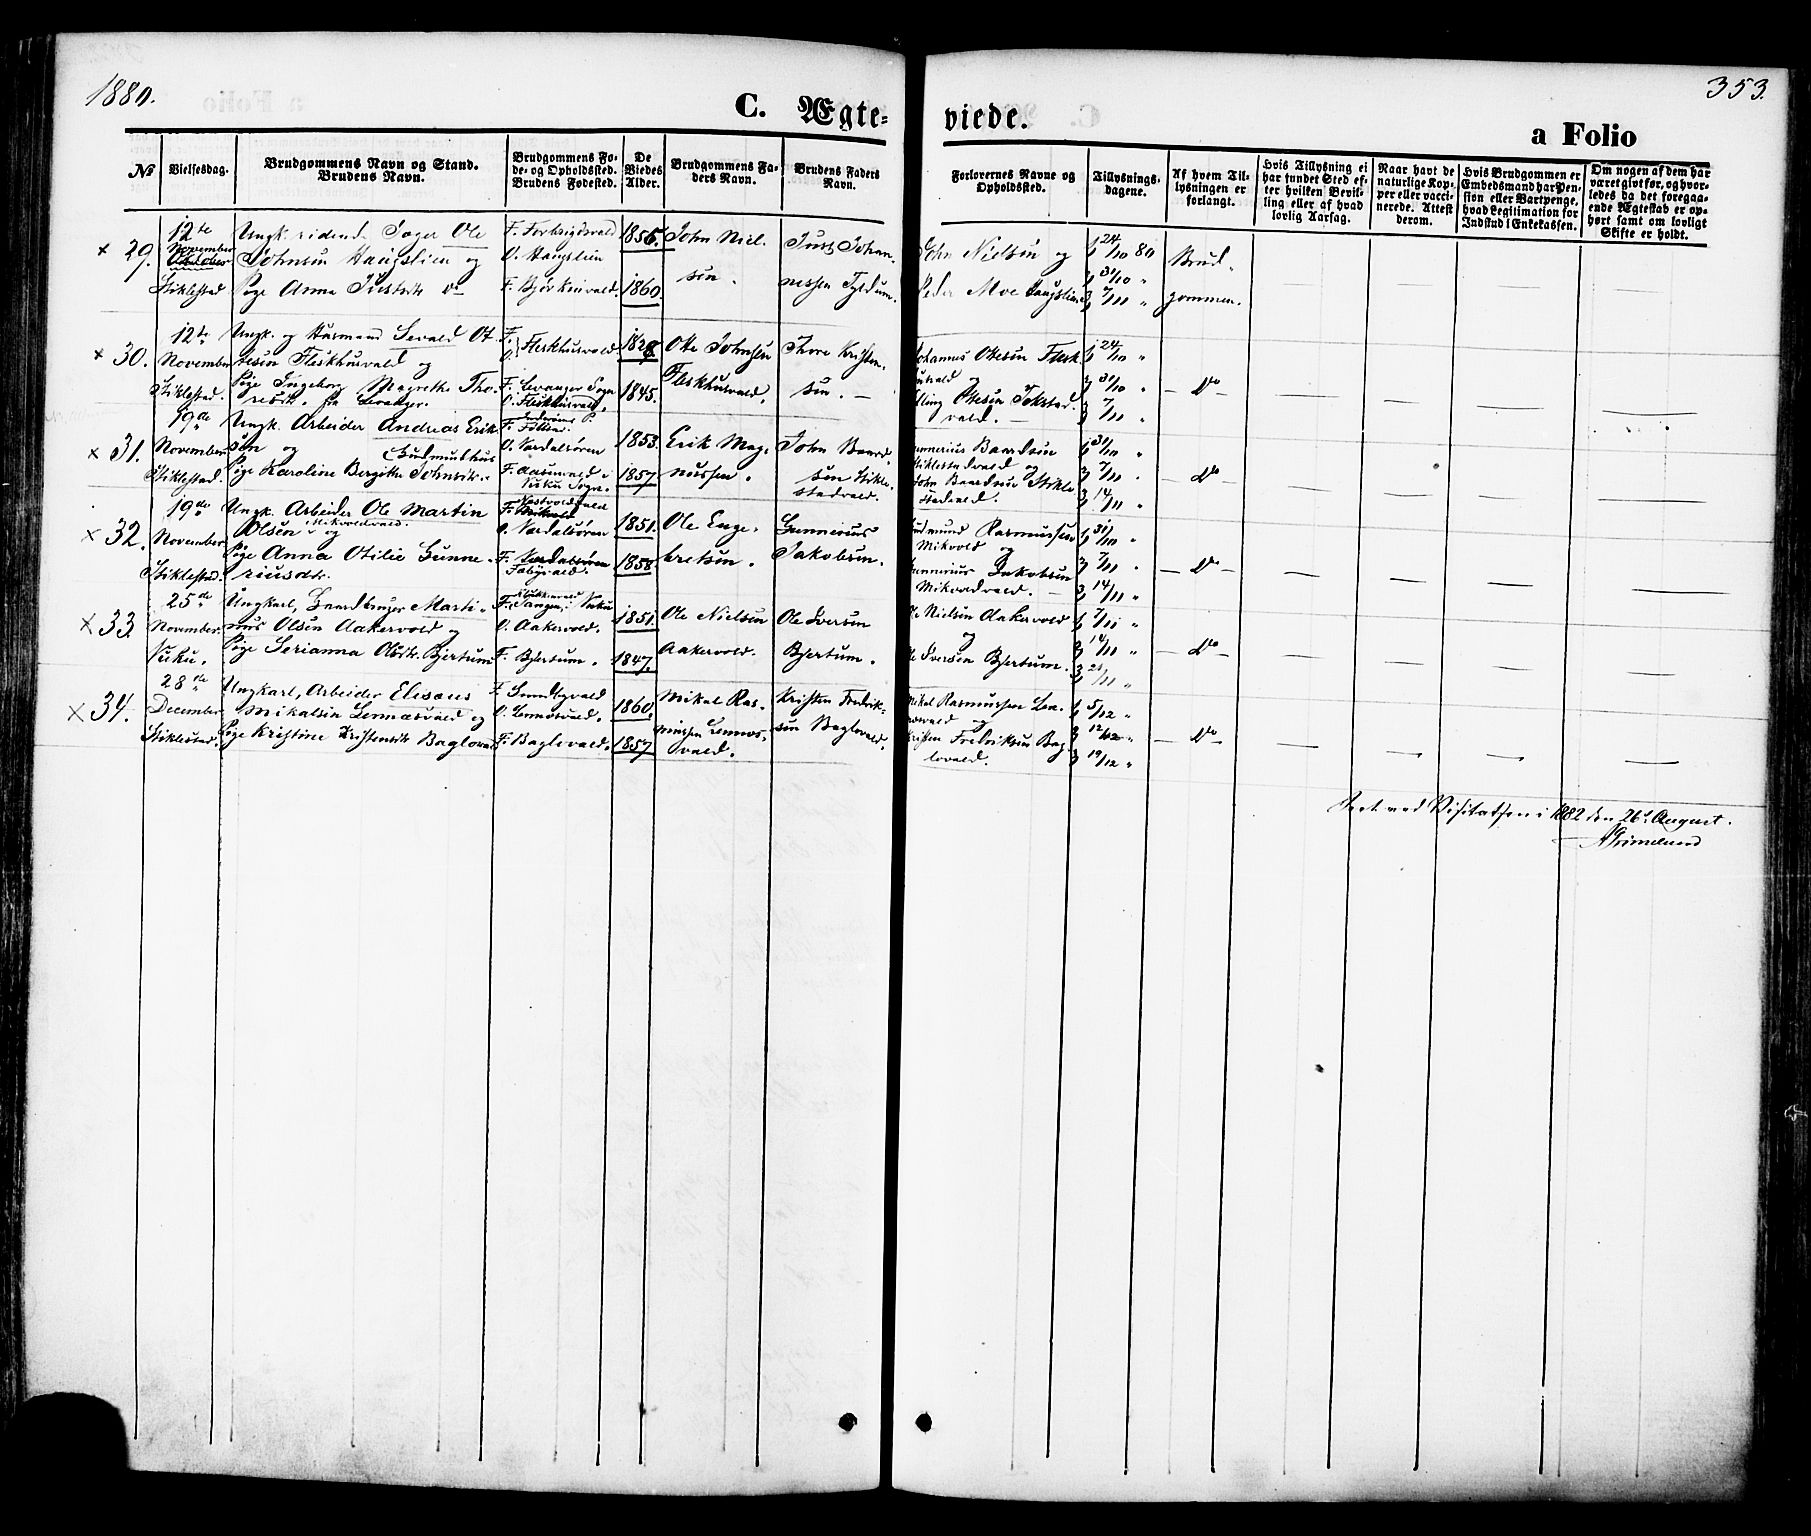 1880.
353.
C. Ægte-
viede.
a Folio
№
Vielsesdag.
Brudgommens Navn og Stand.
Brudens Navn.
Brudgommens Fø-
de- og Opholdssted.
Brudens Fødested.
De
Viedes
Alder.
Brudgommens Fa-
ders Navn.
Brudens Faders
Navn.
Forlovernes Navne og
Opholdssted.
Tillysnings-
dagene.
Af hvem Til-
lysningen er
forlangt.
Hvis Tillysning ei
har fundet Sted ef-
ter hvilken Bevil-
ling eller af hvad
lovlig Aarsag.
Naar havt de
naturlige Kop-
per eller vacci-
nerede. Attest
derom.
Hvis Brudgommen er
Embedsmand har Pen-
sion eller Vartpenge,
hvad Legitimation for
Indskud i Enkekassen.
Om nogen af dem har
været givt før, og hvor-
ledes da det foregaa-
ende Ægteskab er op-
hørt samt om lovligt
Skifte er holdt.
× 29.
12te
November
Oktober
Stiklestad
Ungk. ridend. Jæger Ole
Johnsen Haugslien og
Pige Anna Justsdtr do
O. Haugslien
F. Bjørkenvald.
1856.
1860.
John Niel-
sen.
Just Johan-
nessen Tyldum.
John Nielsen og
Peder Moe Haugslien
b 24/10 80
31/10 "
7/11 "
Brud-
gommen.
× 30.
12te
November
Stiklestad.
Ungk. og Husmand Sevald Ot-
tesen Fleskhusvald og
Pige Ingeborg Magrethe Tho-
resdtr. fra Levanger.
F.
O. Fleskhusvald
F. Levanger Sogn
O. Fleskhusvald.
1845.
Otte Johnsen
Fleskhusvald.
Thore Kristen-
sen. —
Johannes Ottesen Flesk-
husvald og
Elling Ottesen
vald. —
24/10 "
31/10 "
7/11 "
— Do —
× 31.
19de
November
Stiklestad.
Ungk. Arbeider Andreas Erik-
sen og
Pige Karoline Bergitte Johnsdtr.
O. Værdalsøren
Vuku Sogn.
1853.
1857.
Erik Mag-
nussen.
John Baard-
sen Stikle-
stadvald.
Gunnerius Baardsen
Stiklestadvald og
John Baardsen Stikle-
stadvald.
31/10 "
7/11 "
14/11 "
— Do —
× 32.
19de
November
Stiklestad.
Ungk. Arbeider Ole Martin
Olsen Mikvoldvald. og
Pige Anna Otilie Gunne-
riusdtr.
F. Mikvold
O. Værdalsøren
F. Værdalsøren
1851.
1858.
Ole Enge-
bretsen.
Gunnerius
Jakobsen.
Gudmund Rasmussen
Mikvold og
Gunnerius Jakobsen
Mikvoldvald. —
31/10 "
7/11 "
14/11 "
— Do —
× 33.
25de
November
Vuku.
Ungkarl, Gaardbruger Marti-
nus Olsen Aakervold og
Pige Serianna Olsdtr. Bjertum
O. Aakervold.
F. Bjertum.
1851.
1847.
Ole Nielsen
Aakervold.
Ole Iversen
Bjertum.
Ole Nielsen Aakervold
og
Ole Iversen Bjertum.
7/11 "
14/11 "
21/11 "
— Do —
× 34.
28de
December
Stiklestad.
Ungkarl, Arbeider Elisæus
Mikalsen Lennæsvald og
Pige Kristine Kristensdtr Baglovald
F. Sundbyvald
O. Lennæsvald.
F. Baglovald.
1860.
1857.
Mikal Ras-
mussen Lennæs-
vald.
Kristen Fredrik-
sen Baglovald.
Mikal Rasmussen Len-
næsvald og
Kristen Fredriksen Bag-
lovald.
5/12 "
12/12 "
19/12 "
— Do —
Seet ved Visitatsen i 1882 den 26de August.
AGrimelund